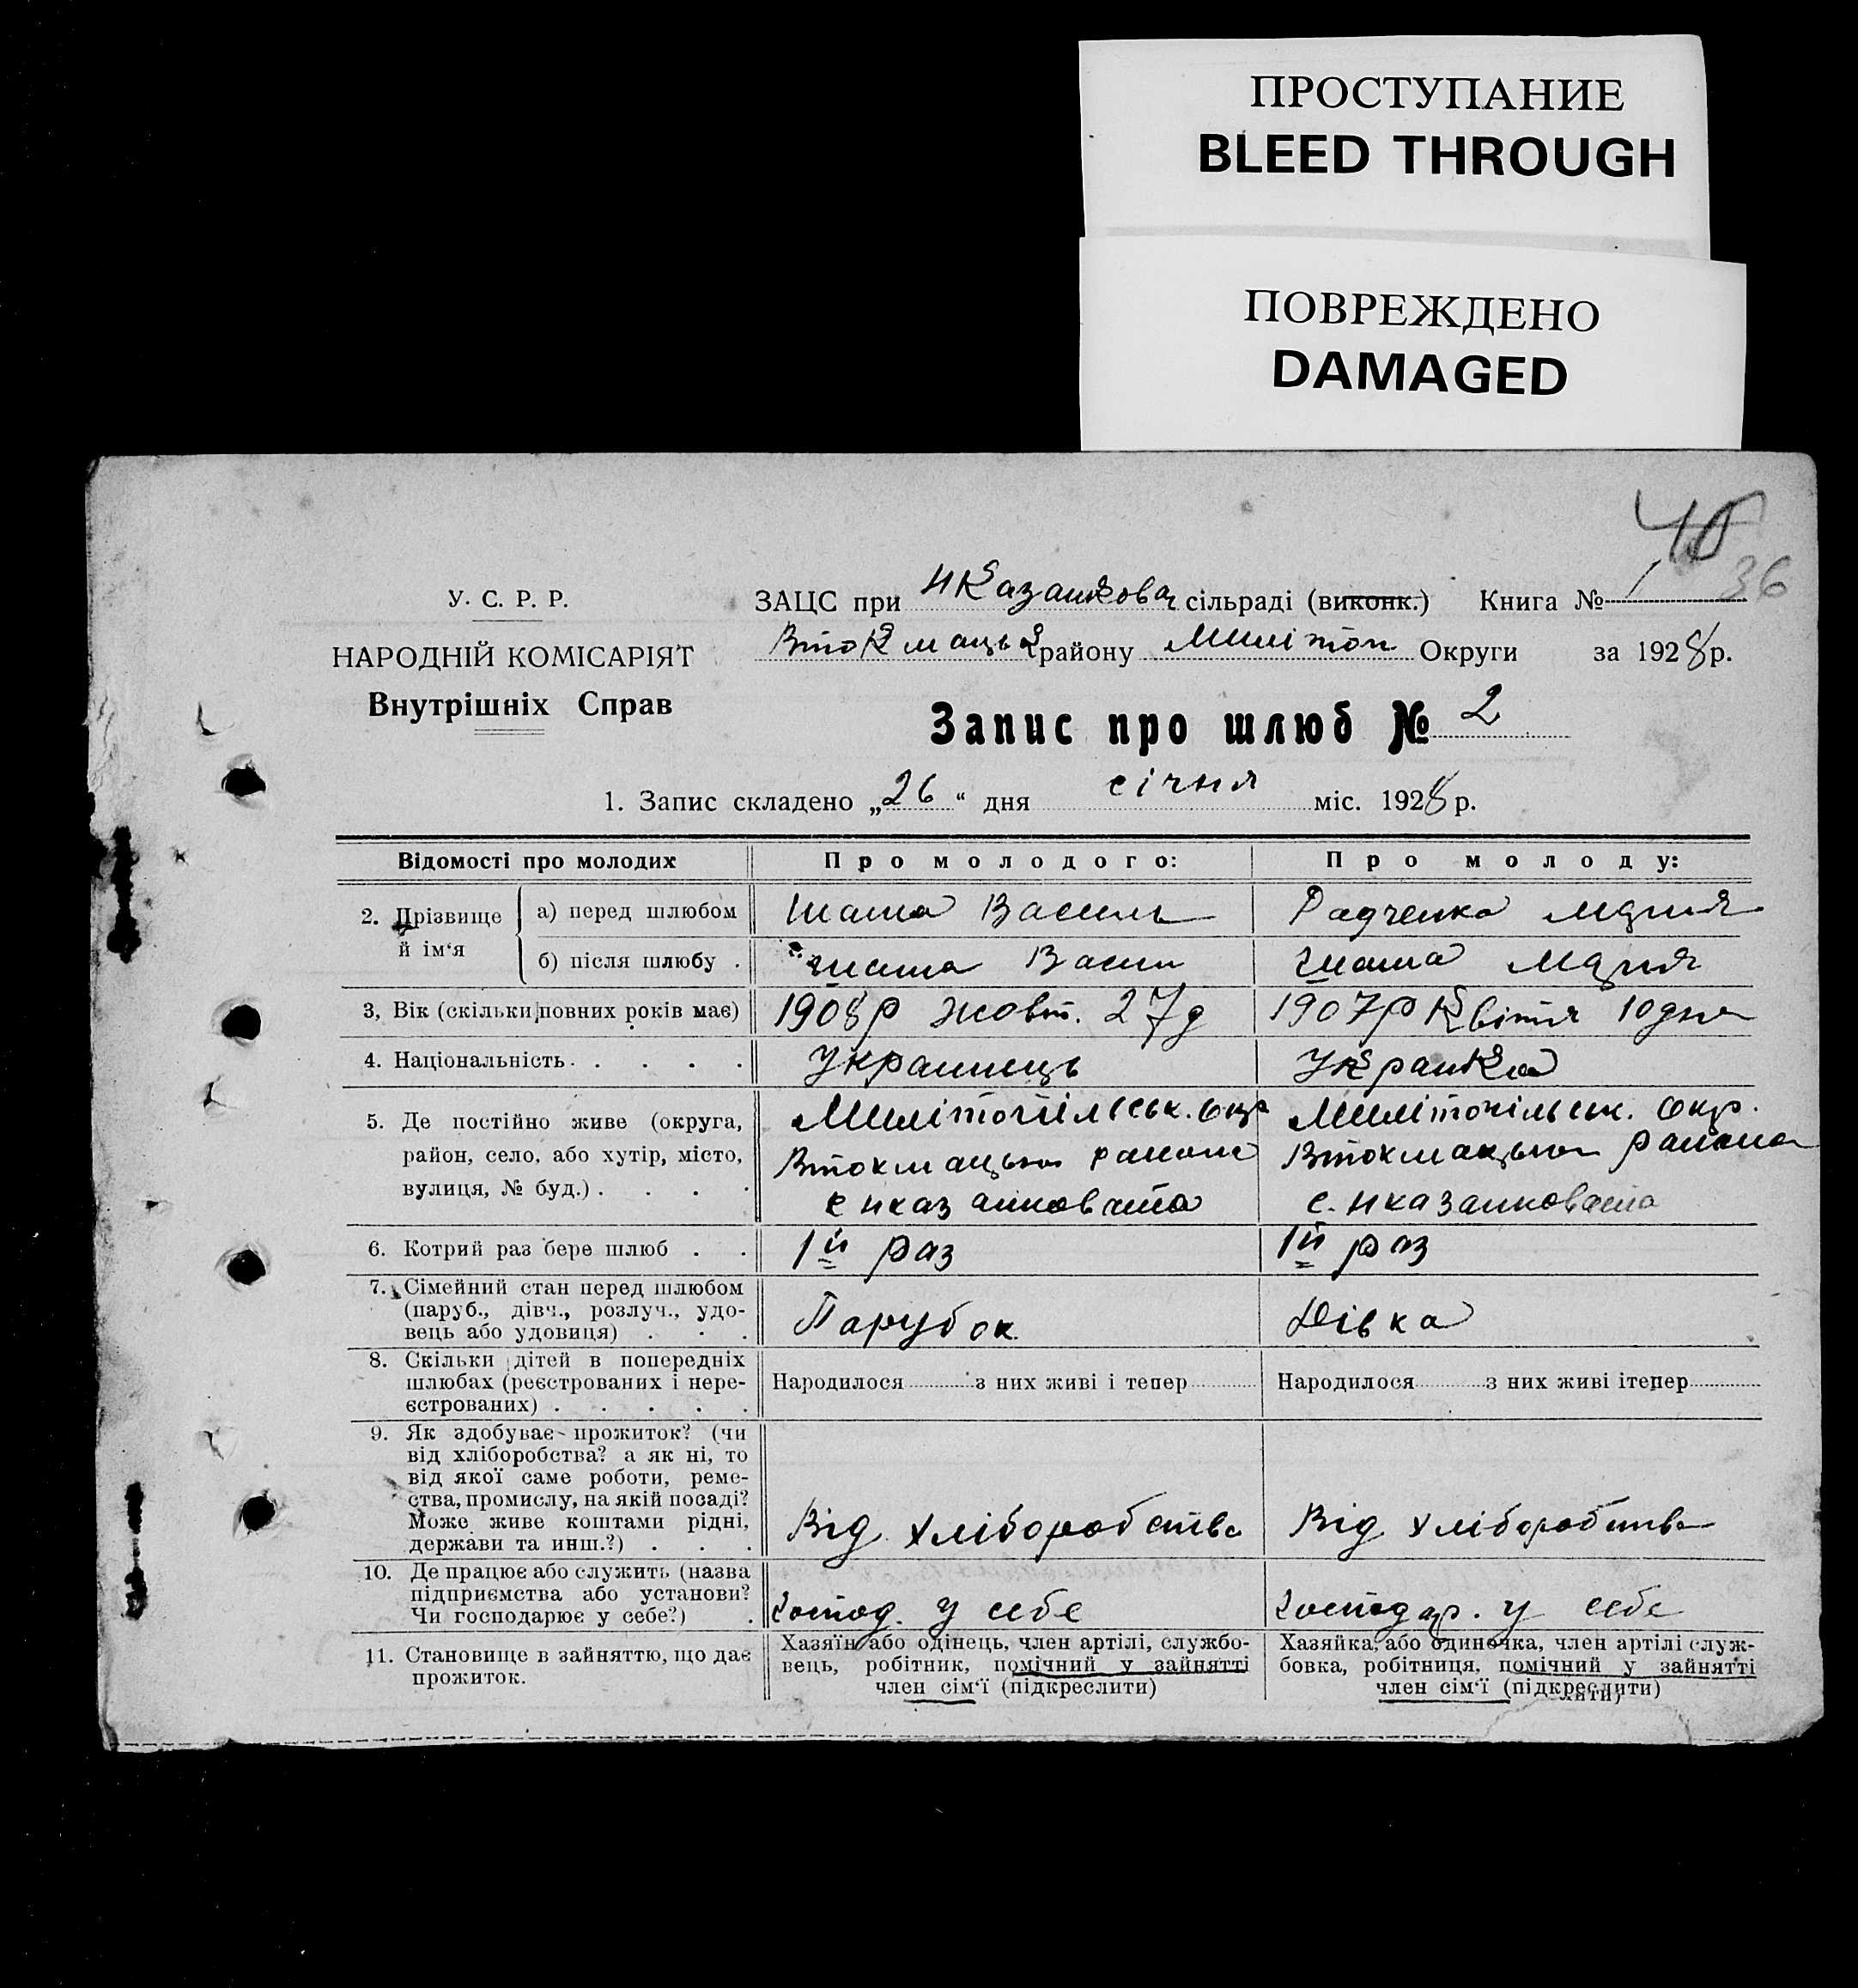 ПРОСТУПАНИЕ
BLEED THROUGH
ПОВРЕЖДЕНО
DAMAGED
36
У. С. Р. Р.
НАРОДНІЙ КОМІСАРІЯТ
Внутрішніх Справ
ЗАЦС при сільраді (виконк.) Книга № 1
району Округи за 1928 р.
Запис про шлюб № 2
1. Запис складено „26“ дня січня міс. 1928 р.
Відомості про молодих
Про молодого:
Про молоду:
2. Прізвище й ім‘я
а) перед шлюбом
Шата Василь
Радченко Мария
б) після шлюбу .
Шата Васил
Шата Мария
3, Вік (скільки повних років має)
1908р Жовт. 27д
1907р Квітня 10 дня
4. Національність . . . . .
Украинець
Украинка
5. Де постійно живе (округа,
район, село, або хутір, місто,
вулиця, № буд.) . . . .
Милітопільськ. Окр
Втокмацького району
с нказанковата
Милітопільськ. Окр.
Втокмацького района
с. нказанковата
6. Котрий раз бере шлюб . .
1й раз
1й раз
7. Сімейний стан перед шлюбом
(паруб., дівч., розлуч., удо-
вець або удовиця) . . .
Парубок
Дівка
8. Скільки дітей в попередніх
шлюбах (реєстрованих і нере-
єстрованих) . . . . .
Народилося з них живі і тепер
Народилося з них живі ітепер
9. Як здобуває прожиток? (чи
від хліборобства? а як ні, то
від якої саме роботи, реме-
ства, промислу, на якій посаді?
Може живе коштами рідні,
держави та инш.?) . . .
Від хліборобства
Від хліборобства
10. Де працює або служить (назва
підприємства або установи?
Чи господарює у себе?) .
господ. у себе
господар. у себе
11. Становище в зайняттю, що дає
прожиток.
Хазяїн або одінець, член артілі, службо-
вець, робітник, помічний у зайнятті
член сім‘ї (підкреслити)
Хазяйка, або одиночка, член артілі служ-
бовка, робітниця, помічний у зайнятті
член сім‘ї (підкреслити)
лити)